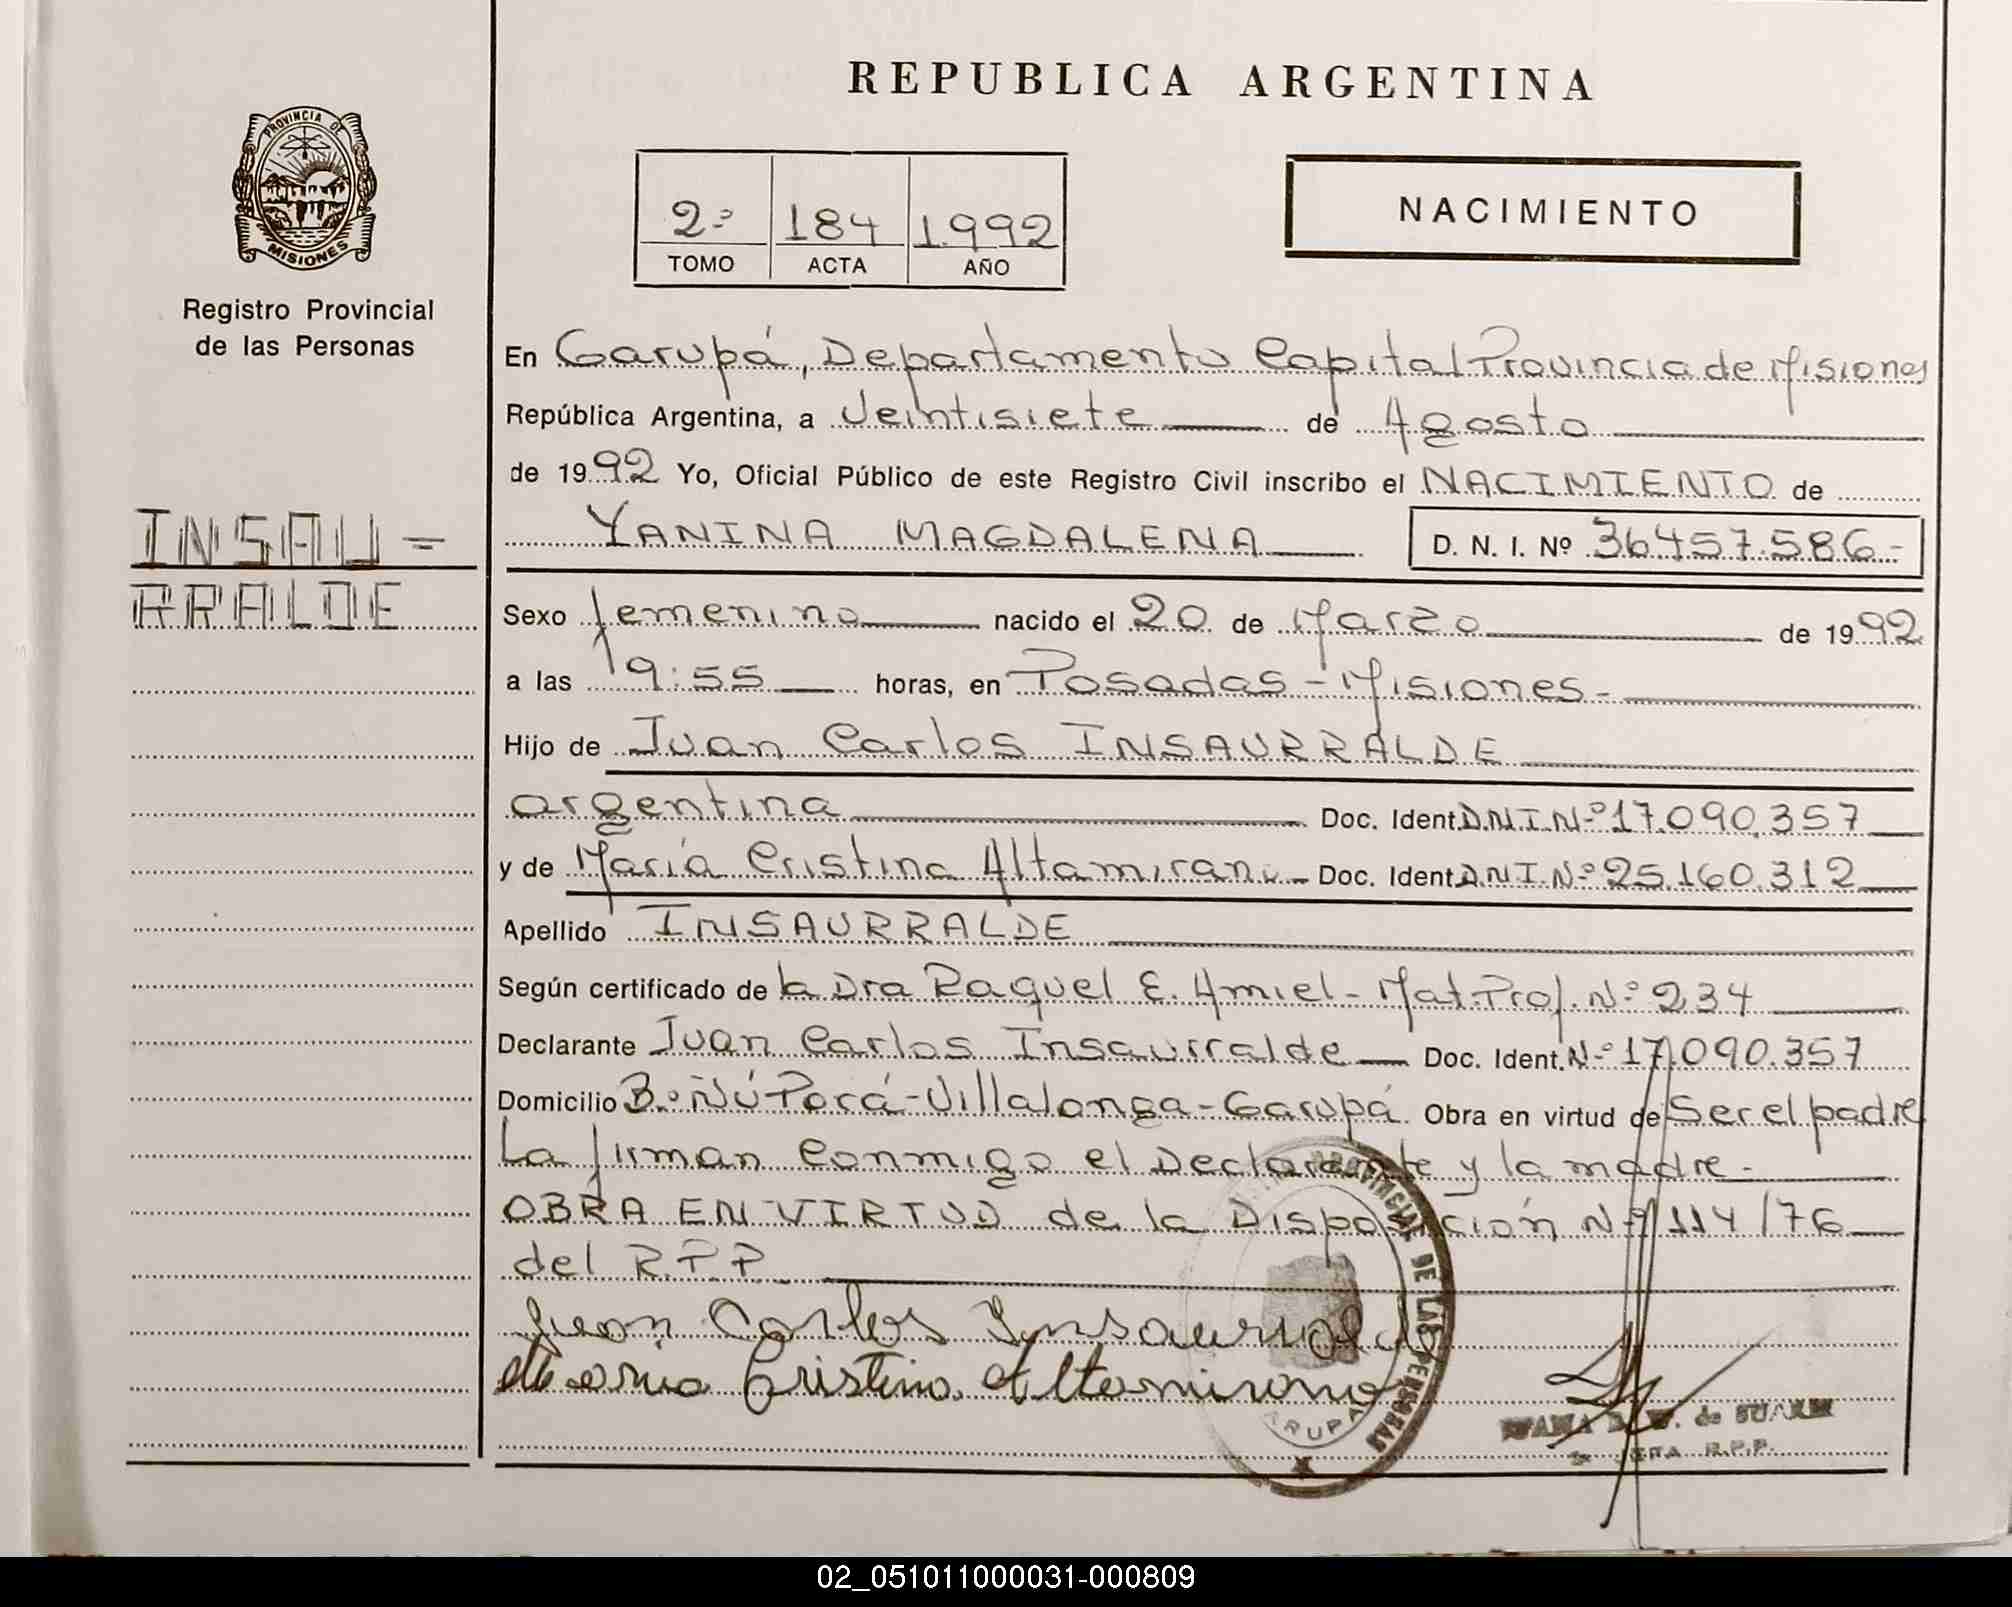 REPUBLICA ARGENTINA
PROVINCIA DE
MISIONES
Registro Provincial
de las Personas
2º 184 1.992
TOMO ACTA AÑO
NACIMIENTO
En Garupá, Departamento Capital Provincia de Misiones
República Argentina, a Veintisiete de Agosto
de 1992 Yo, Oficial Público de este Registro Civil inscribo el NACIMIENTO de
INSAU=
RRALDE
YANINA MAGDALENA D. N. I. Nº 36457.586-
Sexo femenino nacido el 20 de Marzo de 1992
a las 19:55 horas, en Posadas - Misiones-
Hijo de Juan Carlos INSAURRALDE
argentina Doc. Ident. D.N.I.Nº 17.090.357
y de María Cristina Altamirano Doc. Ident. D.N.I.Nº 25.160.312
Apellido INSAURRALDE
Según certificado de la Dra Raquel E. Amiel - Mat. Prof. Nº 234
Declarante Juan Carlos Insaurralde Doc. Ident. Nº 17.090.357
Domicilio Bº Ñú Porá - Villalonga - Garupá Obra en virtud de Ser el padre
La firman conmigo el Declarante y la madre -
OBRA EN VIRTUD de la Disposición Nº 114/76
del R.P.P
Juan Carlos Insaurralde
Maria Cristina Altamirano
PROVINCIAL DE LAS PERSONAS
GARUPA
de
R.P.P.
02_051011000031-000809